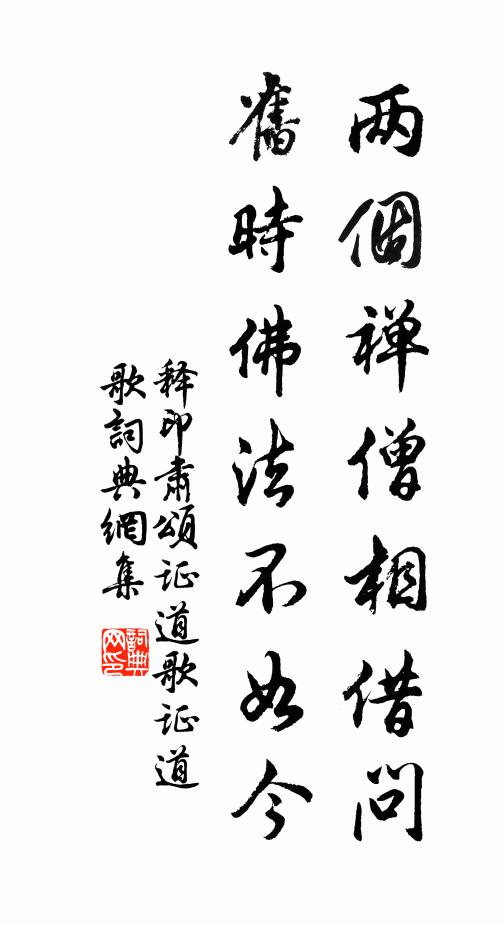 两個禅僧相借问
舊時佛法不如今
释印肃颂证道歌证道
歌詞典網集
詞典网印